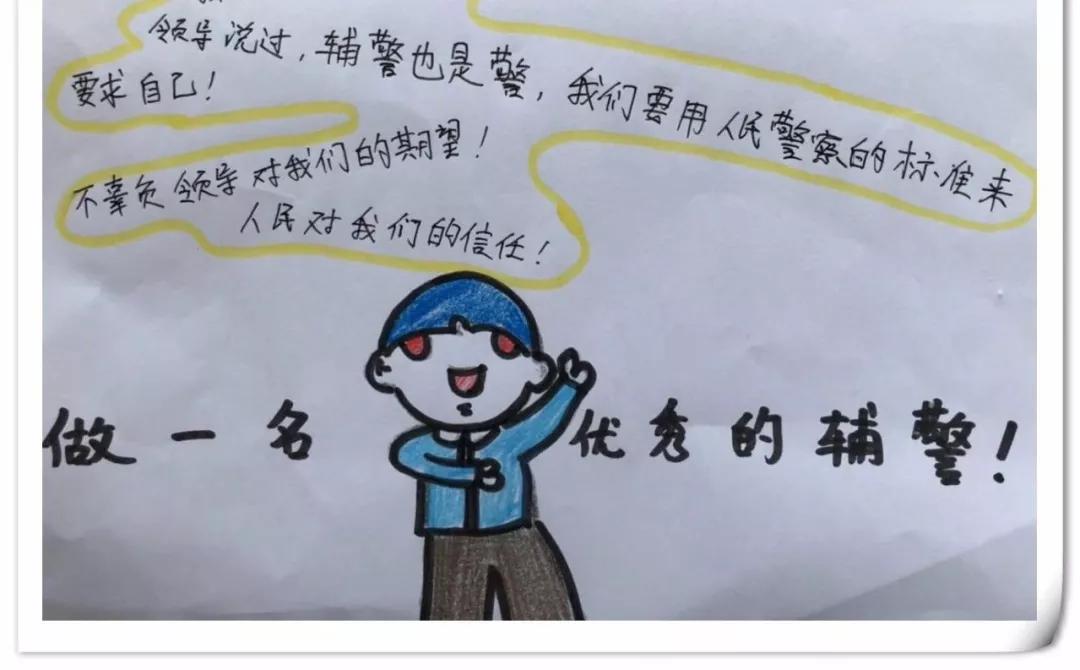 领导说过，辅警也是警，我们要用人民警察的标准来
要求自己！
不辜负领导对我们的期望！
人民对我们的信任！
做一名优秀的辅警！